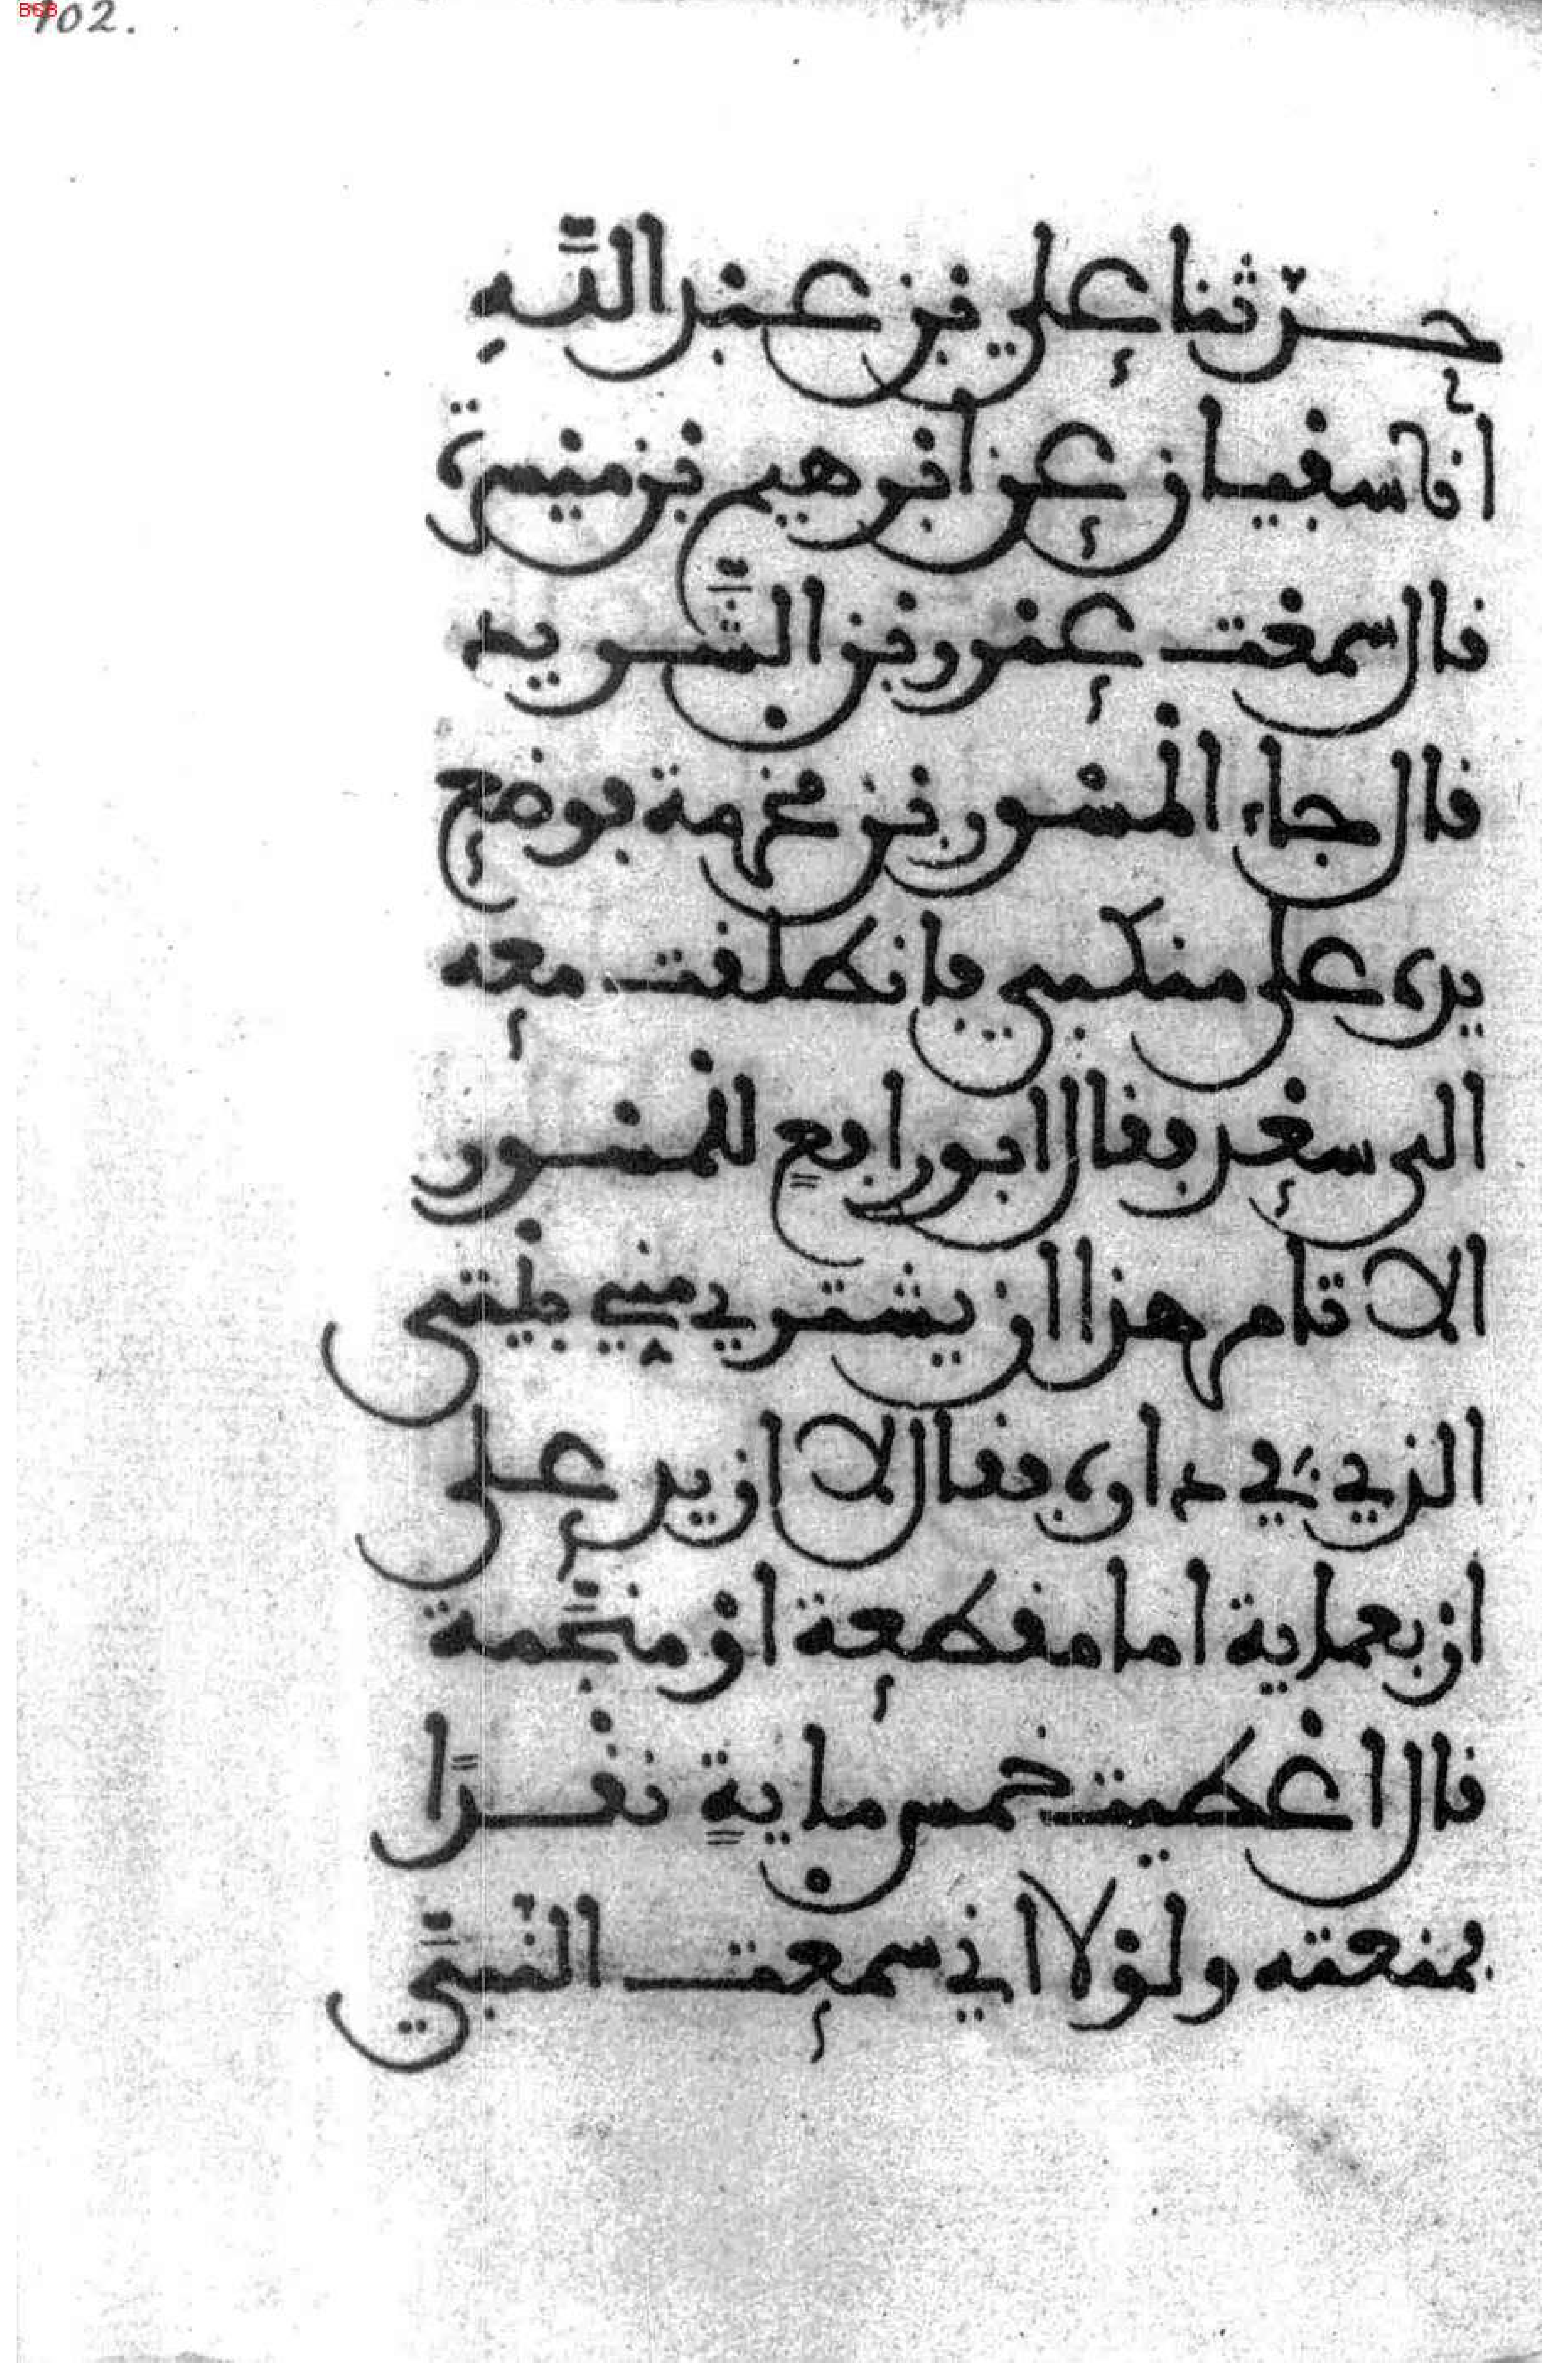 BSB
102.
حدثنا علي بن عبد اللّه
انا سفيان عن ابرهيم بن ميسرة
قال سمعت عمرو بن الشّريد
قال جاء المسور بن مخرمة فوضع
يده على منكبي فانطلقت معه
الى سعد فقال ابو رافع للمسور
الا تامر هذا ان يشتري مني بيتي
الذي في داره فقال لا ازيد على
اربعماية اما مقطعة او منجّمة
قال اعطيت خمس ماية نقدًا
فمنعته ولولا اني سمعت النبيّ